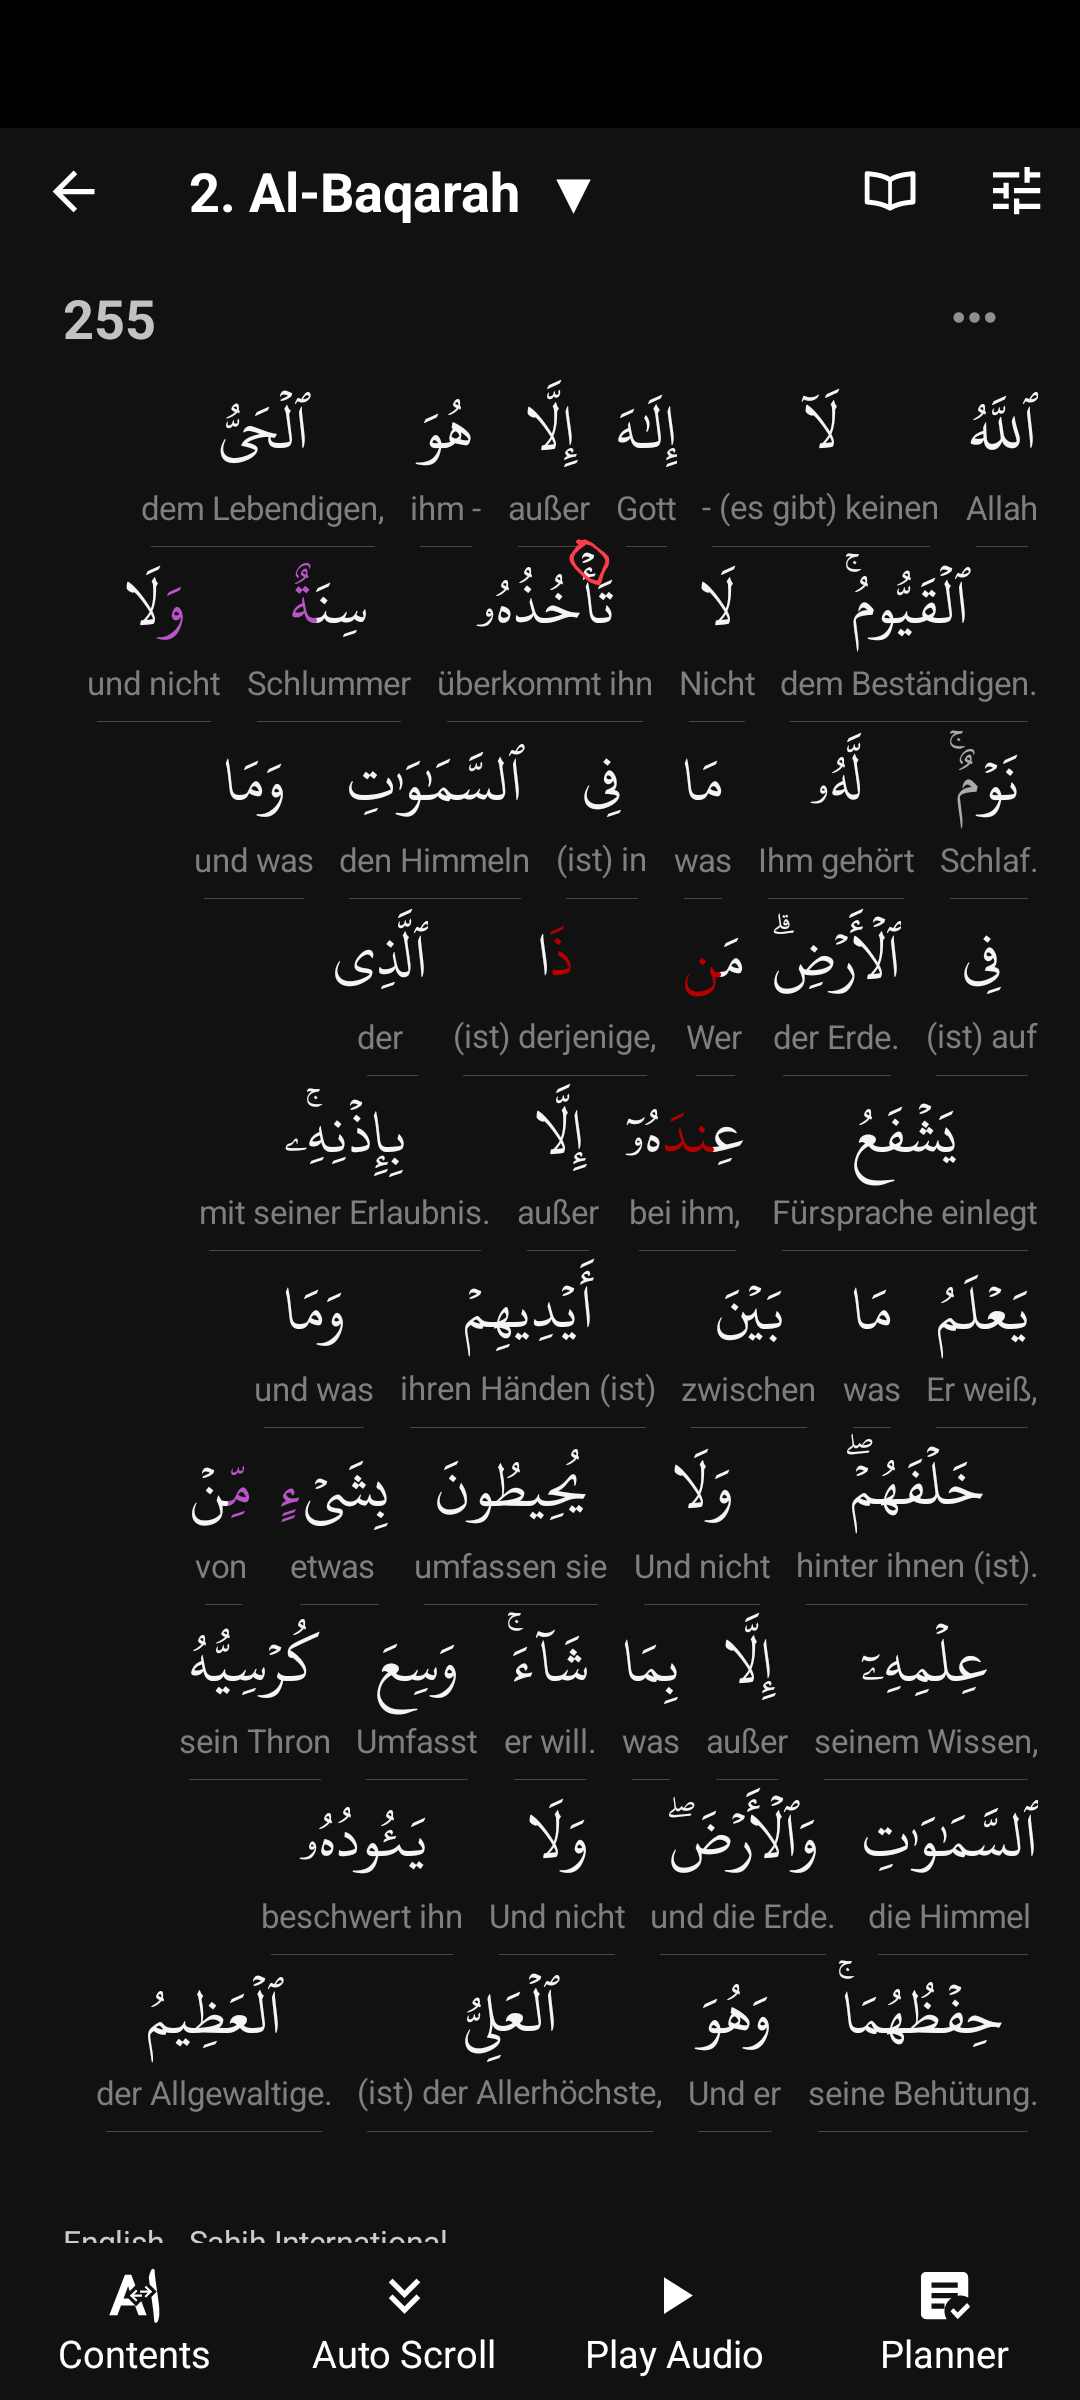 2. Al-Baqarah ▼
255
ٱللَّهُ لَآ إِلَـٰهَ إِلَّا هُوَ ٱلْحَىُّ
Allah - (es gibt) keinen Gott außer ihm - dem Lebendigen,
ٱلْقَيُّومُ ۚ لَا تَأْخُذُهُۥ سِنَةٌ وَلَا
dem Beständigen. Nicht überkommt ihn Schlummer und nicht
نَوْمٌ ۚ لَّهُۥ مَا فِى ٱلسَّمَـٰوَٰتِ وَمَا
Schlaf. Ihm gehört was (ist) in den Himmeln und was
فِى ٱلْأَرْضِ ۗ مَن ذَا ٱلَّذِى
(ist) auf der Erde. Wer (ist) derjenige, der
يَشْفَعُ عِندَهُۥٓ إِلَّا بِإِذْنِهِۦ ۚ
Fürsprache einlegt bei ihm, außer mit seiner Erlaubnis.
يَعْلَمُ مَا بَيْنَ أَيْدِيهِمْ وَمَا
Er weiß, was zwischen ihren Händen (ist) und was
خَلْفَهُمْ ۖ وَلَا يُحِيطُونَ بِشَىْءٍ مِّنْ
hinter ihnen (ist). Und nicht umfassen sie etwas von
عِلْمِهِۦٓ إِلَّا بِمَا شَآءَ ۚ وَسِعَ كُرْسِيُّهُ
seinem Wissen, außer was er will. Umfasst sein Thron
ٱلسَّمَـٰوَٰتِ وَٱلْأَرْضَ ۖ وَلَا يَـُٔودُهُۥ
die Himmel und die Erde. Und nicht beschwert ihn
حِفْظُهُمَا ۚ وَهُوَ ٱلْعَلِىُّ ٱلْعَظِيمُ
seine Behütung. Und er (ist) der Allerhöchste, der Allgewaltige.
English - Sahih International
Contents Auto Scroll Play Audio Planner